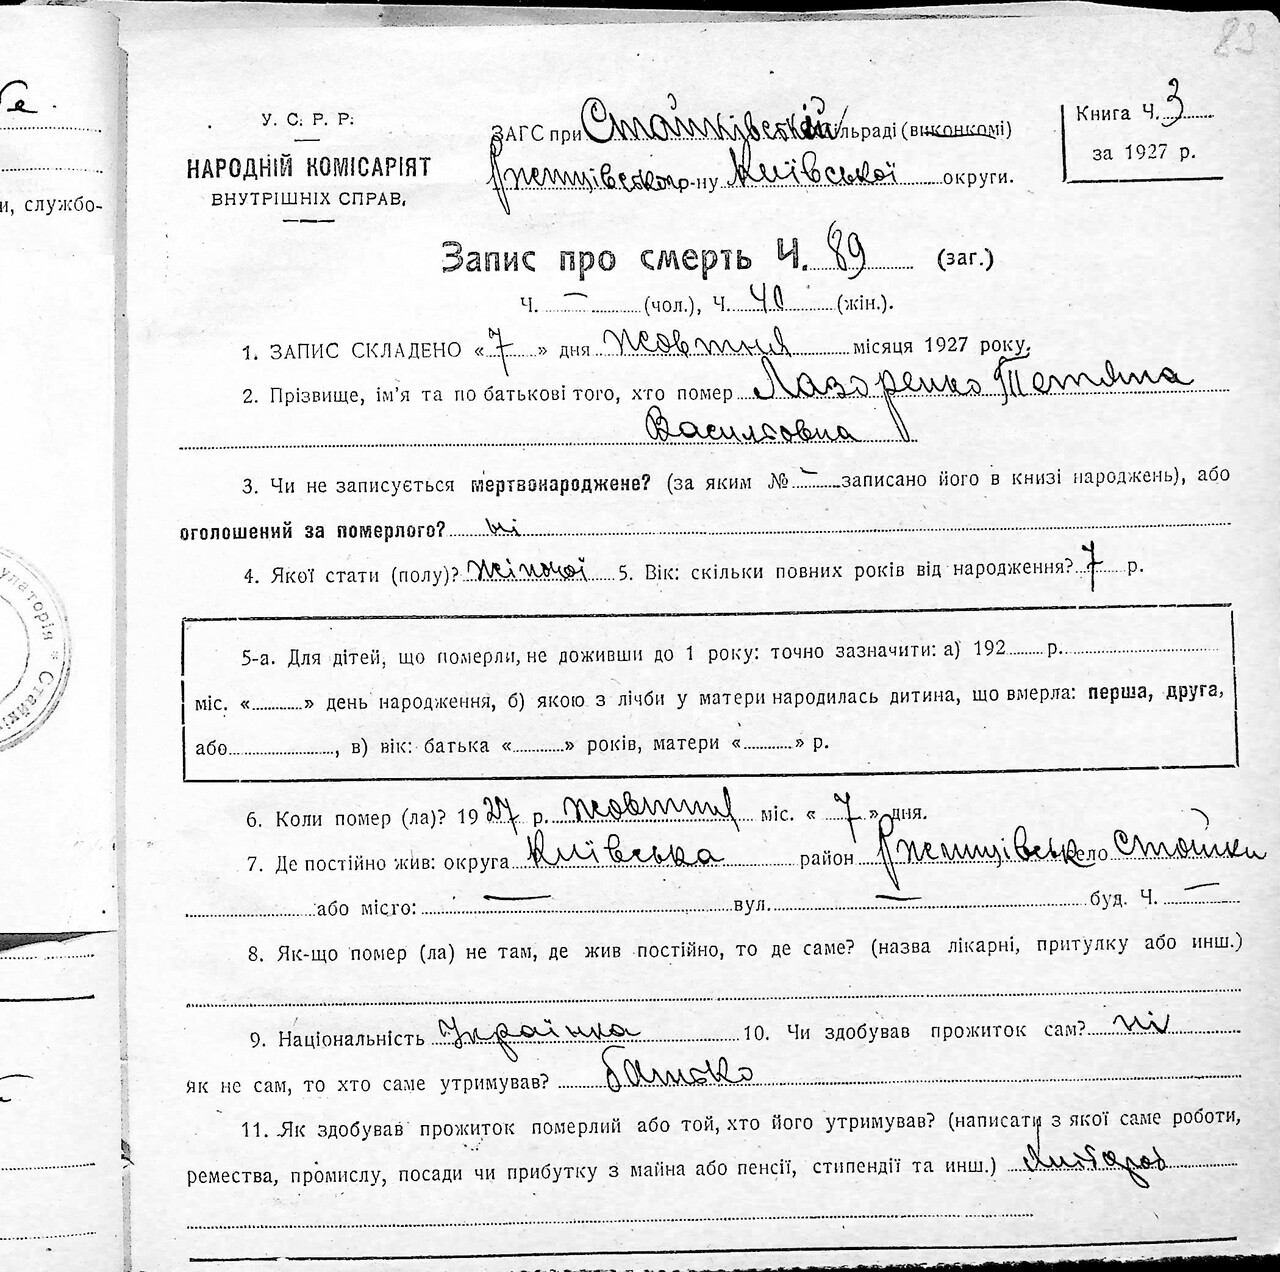 89
У. С. Р. Р.
НАРОДНІЙ КОМІСАРІЯТ
ВНУТРІШНІХ СПРАВ.
ЗАГС при Стайківській сільраді (виконкомі)
Ржищівського р-ну Київської округи.
Книга Ч. 3
за 1927 р.
Запис про смерть Ч. 89 (заг.)
Ч. — (чол.), Ч. 40 (жін.).
1. ЗАПИС СКЛАДЕНО «7» дня жовтня місяця 1927 року.
2. Прізвище, ім'я та по батькові того, хто помер Лазоренко Тетяна
Василівна
3. Чи не записується мертвонароджене? (за яким № — записано його в книзі народжень), або
оголошений за померлого? ні
4. Якої стати (полу)? жіночої 5. Вік: скільки повних років від народження? 7 р.
5-а. Для дітей, що померли, не доживши до 1 року: точно зазначити: а) 192 р.
міс. « » день народження, б) якою з лічби у матери народилась дитина, що вмерла: перша, друга,
або , в) вік: батька « » років, матери « » р.
6. Коли помер (ла)? 1927 р. жовтня міс. «7» дня.
7. Де постійно жив: округа Київська район Ржищівськ село Стайки
або місто: — вул. — буд. Ч. —
8. Як-що помер (ла) не там, де жив постійно, то де саме? (назва лікарні, притулку або инш.)
9. Національність Українка 10. Чи здобував прожиток сам? ні
як не сам, то хто саме утримував? батько
11. Як здобував прожиток померлий або той, хто його утримував? (написати з якої саме роботи,
ремества, промислу, посади чи прибутку з майна або пенсії, стипендії та инш.) хлібороб
и, службо-
улаторія * Стайків